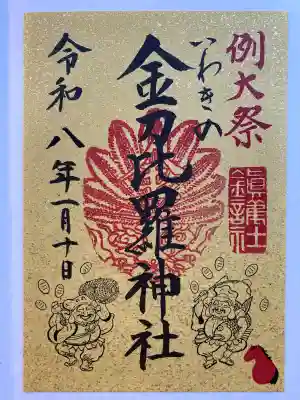 例大祭
いわきの
金刀比羅神社
令和八年一月十日